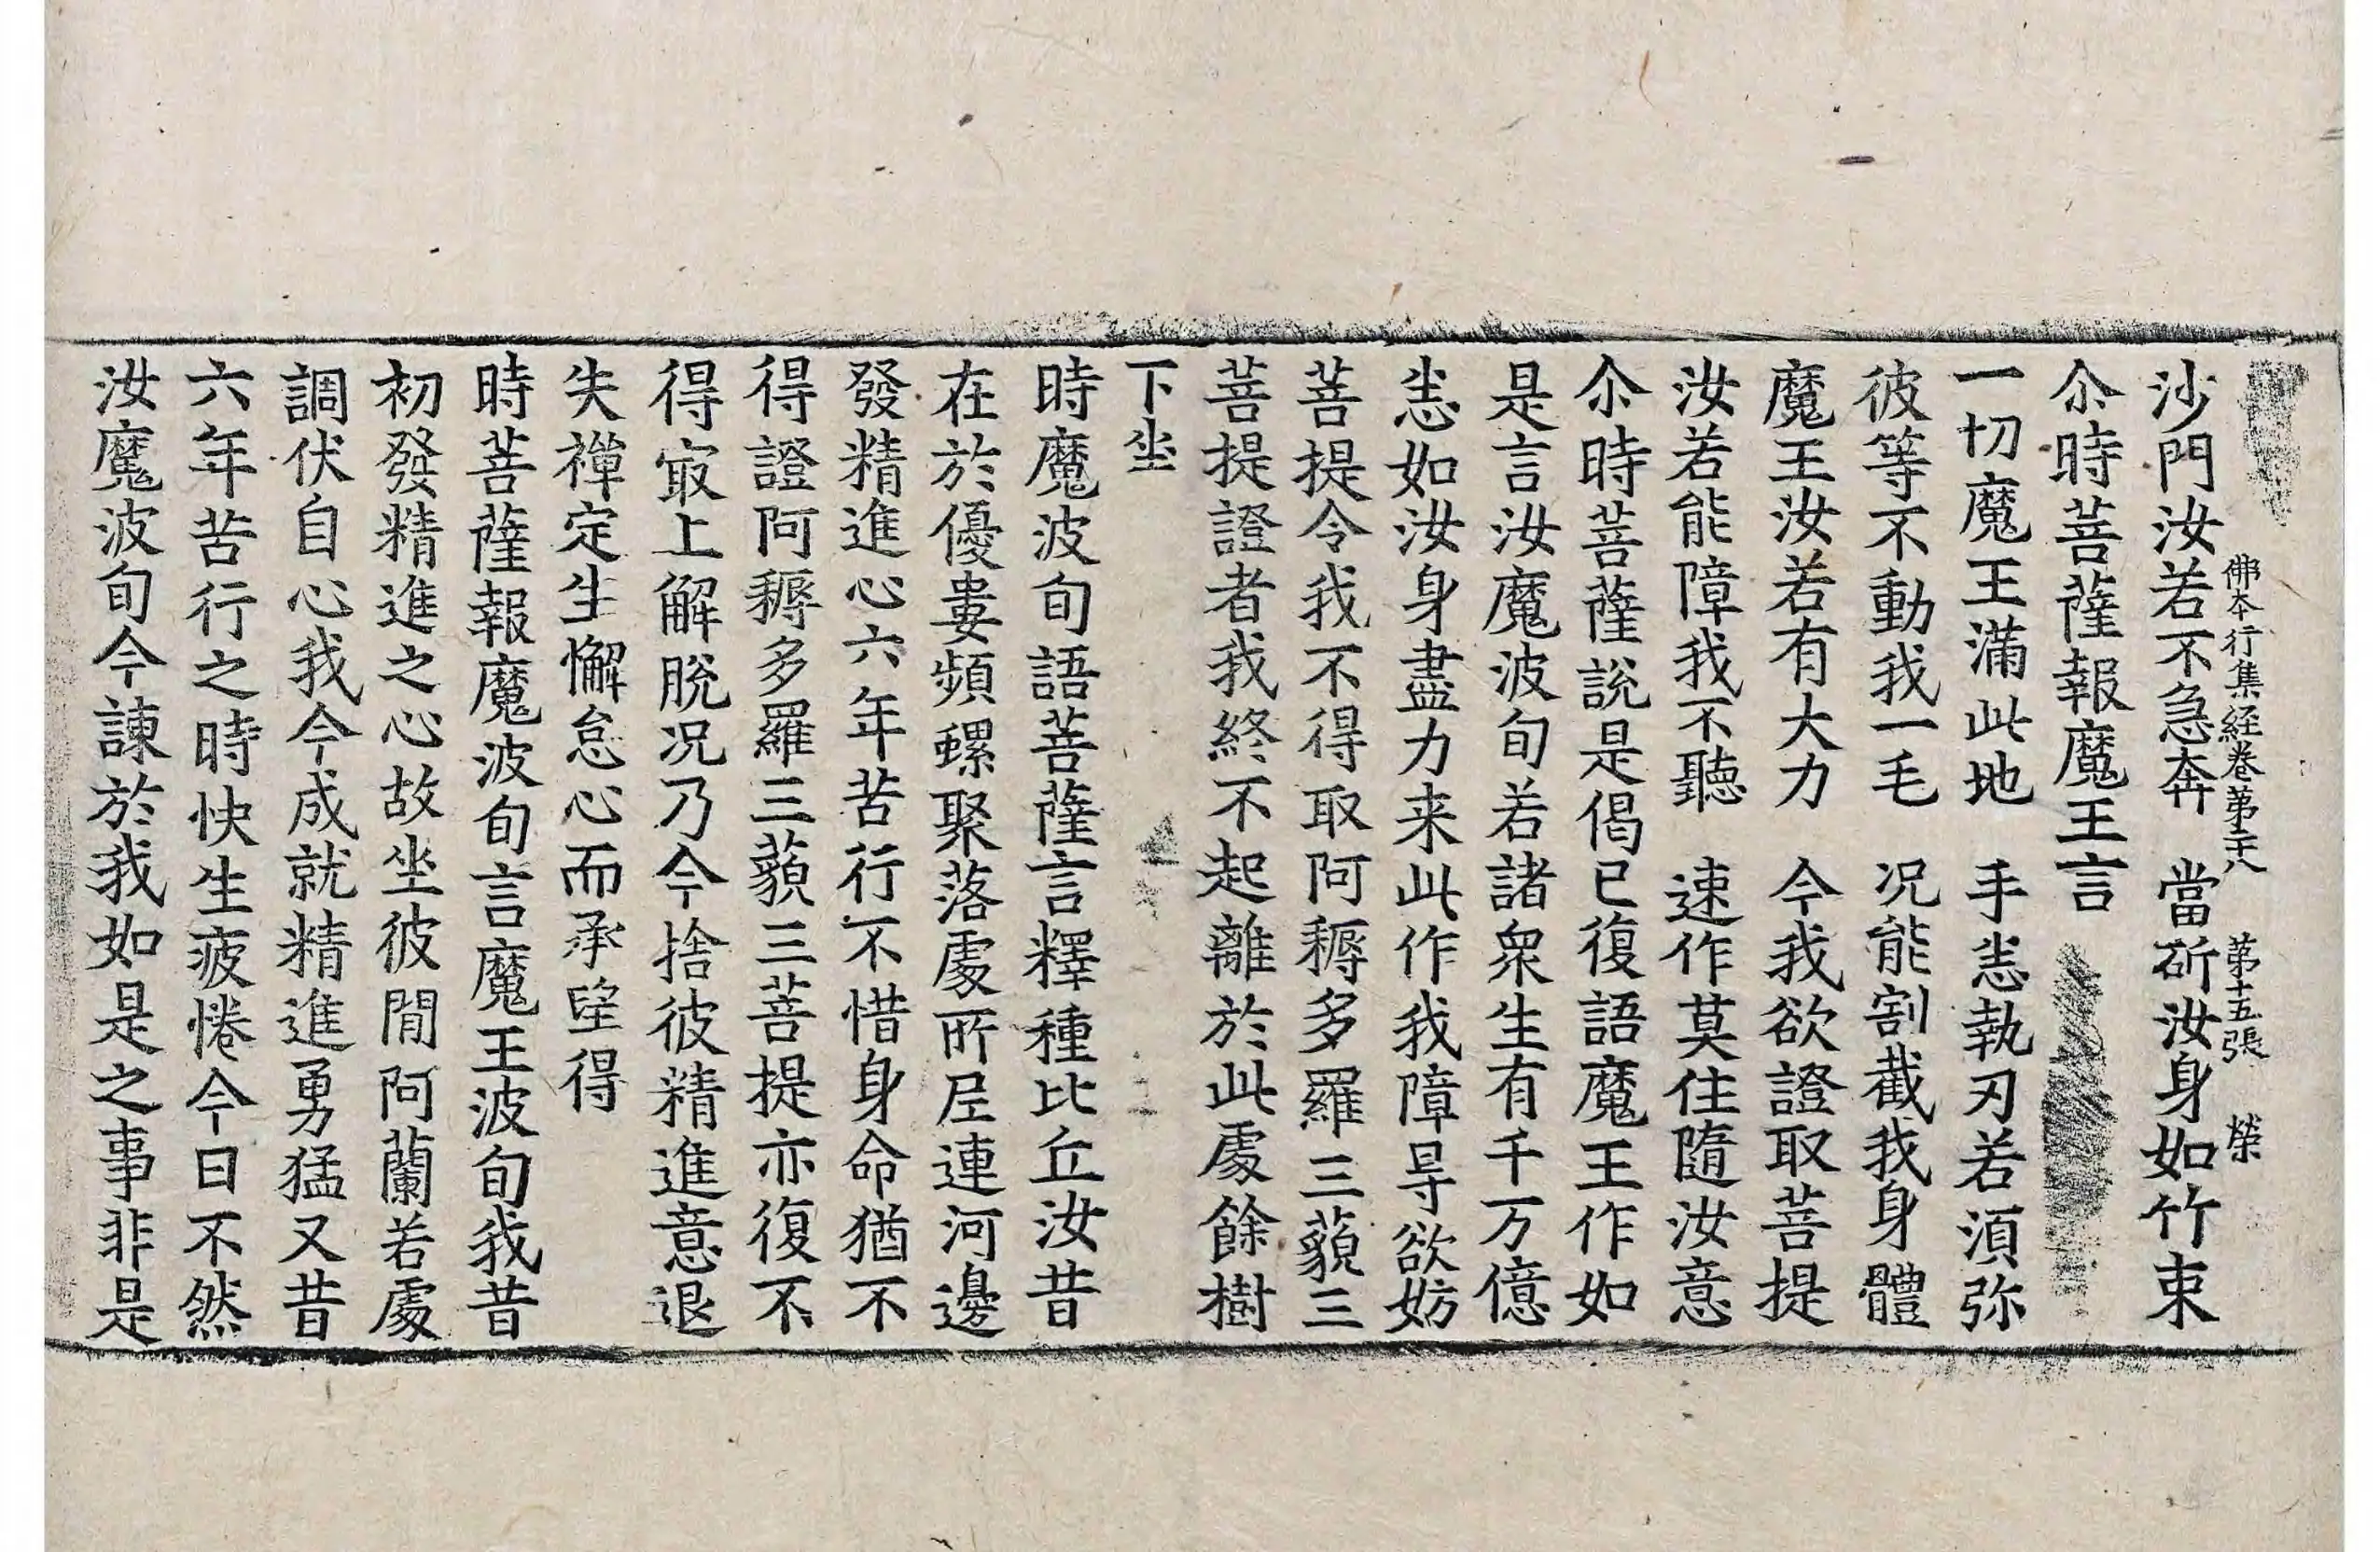 佛本行集経巻第二十八　第十五張　榮
沙門汝若不急奔　當斫汝身如竹束
尒時菩薩報魔王言
一切魔王滿此地　手恙執刃若湏弥
彼等不動我一毛　况能割截我身體
魔王汝若有大力　今我欲證取菩提
汝若能障我不聽　速作莫住隨汝意
尒時菩薩說是偈已復語魔王作如
是言汝魔波旬若諸衆生有千万億
恙如汝身盡力来此作我障㝵欲妨
菩提令我不得取阿耨多羅三藐三
菩提證者我終不起離於此處餘樹
下坐
時魔波旬語菩薩言釋種比丘汝昔
在於優婁頻螺聚落處所尼連河邊
發精進心六年苦行不惜身命猶不
得證阿耨多羅三藐三菩提亦復不
得㝡上解脫况乃今捨彼精進意退
失禪定生懈怠心而承望得
時菩薩報魔波旬言魔王波旬我昔
初發精進之心故坐彼閒阿蘭若處
調伏自心我今成就精進勇猛又昔
六年苦行之時快生疲惓今日不然
汝魔波旬今諫於我如是之事非是